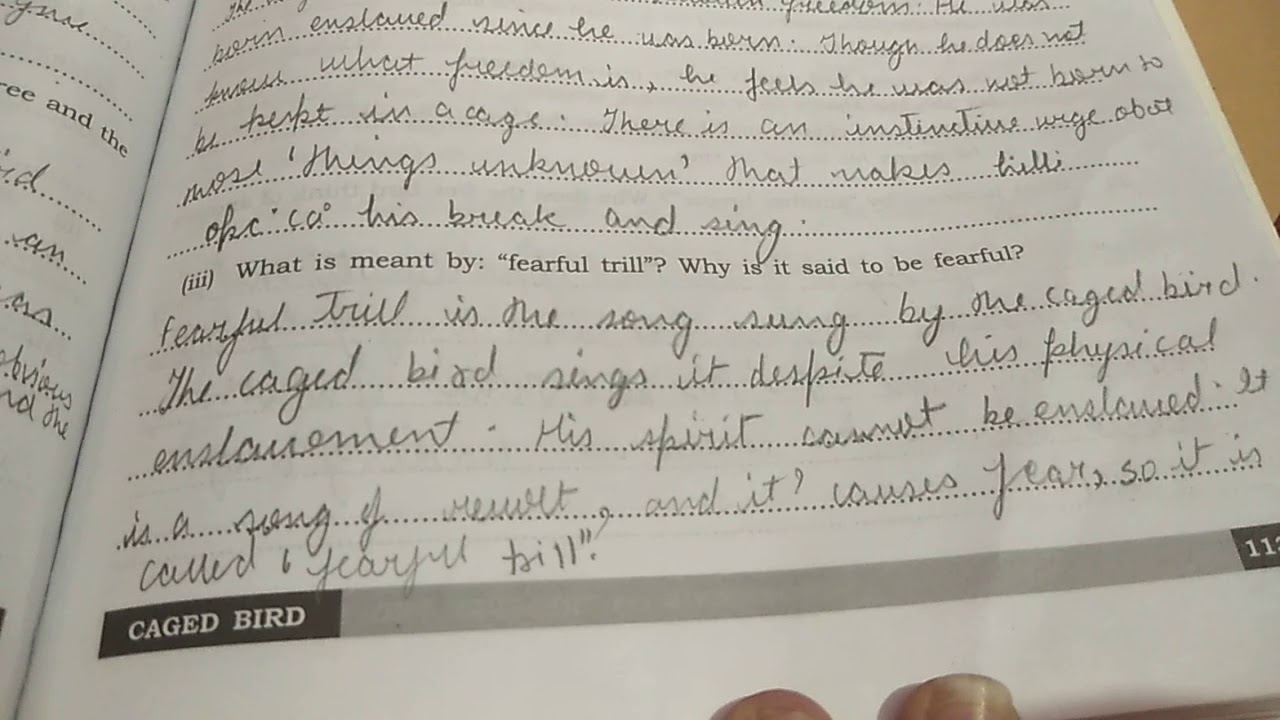 ree and the
obvious
freedom. He was
born enslaved since he was born. Though he does not
know what freedom is, he feels he was not born to
be kept in a cage. There is an instinctive urge
'things unknown' that makes
his break and sing.
(iii) What is meant by: "fearful trill"? Why is it said to be fearful?
Fearful Trill is the song sung by the caged bird.
The caged bird sings it despite his physical
enslavement. His spirit cannot be enslaved. It
is a song of revolt, and it causes fear, so it is
called "fearful trill".
CAGED BIRD